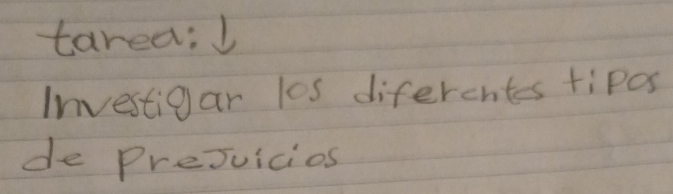 tarea: ↓
Investigar los diferentes tipos
de prejuicios